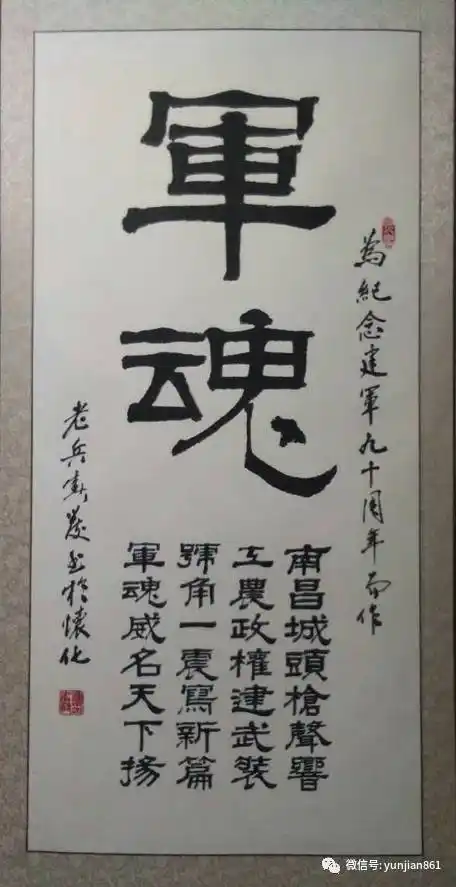 軍魂
為紀念建軍九十周年而作
南昌城頭槍聲響
工農政權建武裝
號角一震寫新篇
軍魂威名天下揚
老兵書於懷化
微信号: yunjian861